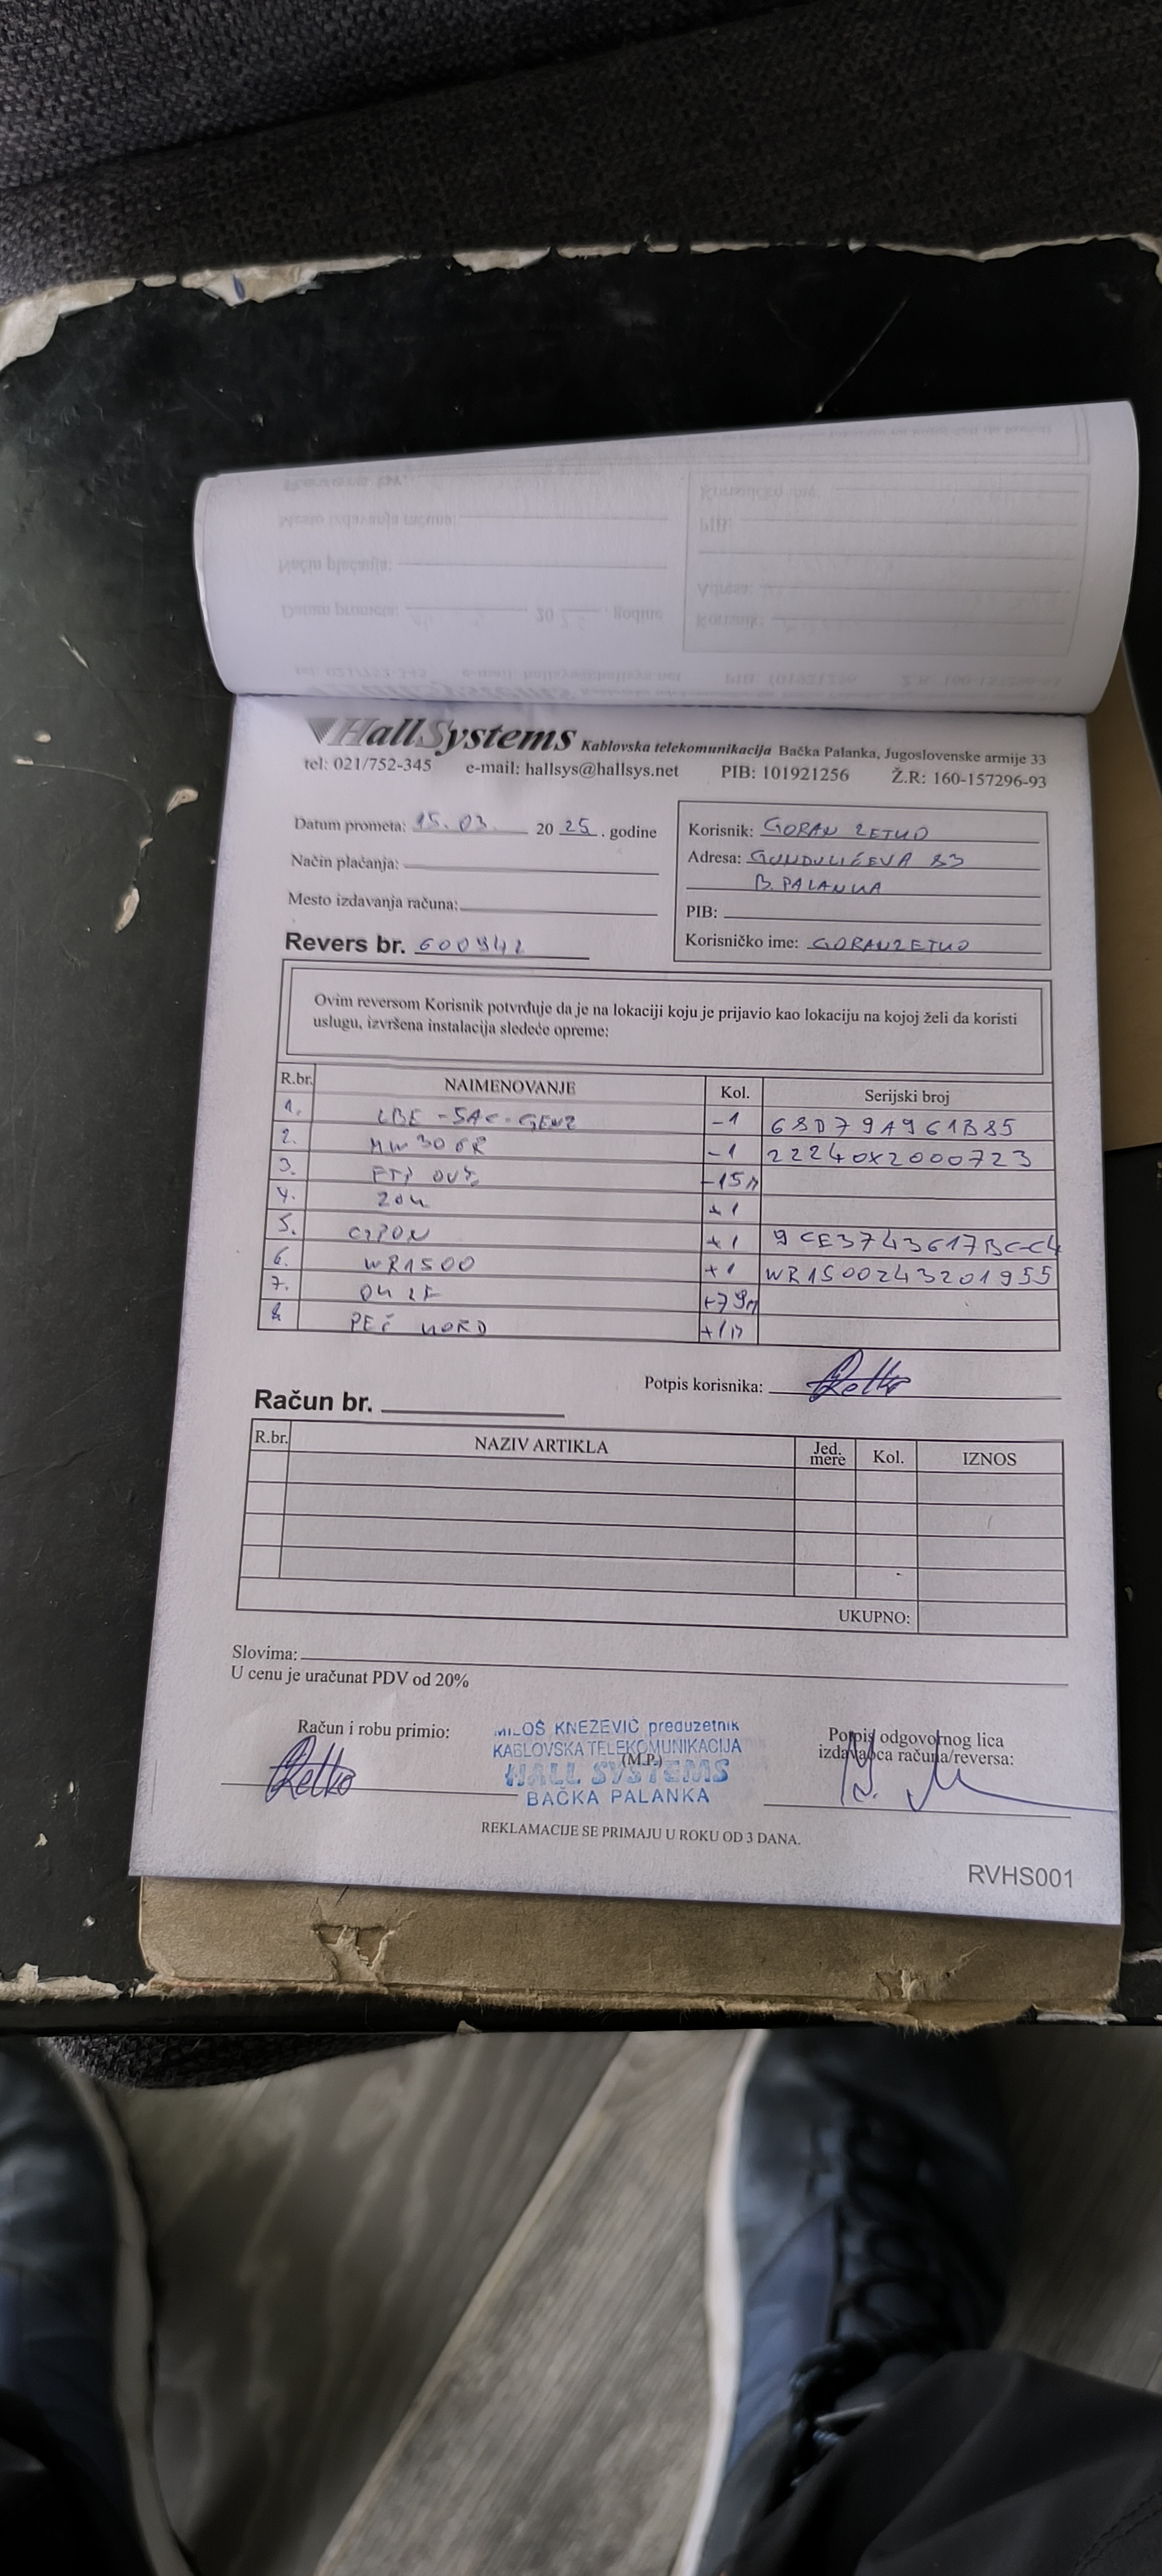 HallSystems Kablovska telekomunikacija Bačka Palanka, Jugoslovenske armije 33
tel: 021/752-345 e-mail: hallsys@hallsys.net PIB: 101921256 Ž.R: 160-157296-93
Datum prometa: 15.03. 20 25. godine
Način plaćanja:
Mesto izdavanja računa:
Revers br. 600942
Korisnik: GORAN ZETKO
Adresa: GUNDULIĆEVA 83
B. PALANKA
PIB:
Korisničko ime: GORANZETKO
Ovim reversom Korisnik potvrđuje da je na lokaciji koju je prijavio kao lokaciju na kojoj želi da koristi
uslugu, izvršena instalacija sledeće opreme:
R.br. NAIMENOVANJE Kol. Serijski broj
1. LBE-5AC-GEN2 -1 68D79A961B85
2. MW306R -1 22240X2000723
3. FTP -15m
4. +1
5. GPON +1 9CE3743617BCC4
6. WR1500 +1 WR1500243201955
7. +79m
8. +1
Potpis korisnika:
Račun br.
R.br. NAZIV ARTIKLA Jed. mere Kol. IZNOS
UKUPNO:
Slovima:
U cenu je uračunat PDV od 20%
Račun i robu primio:
MILOŠ KNEŽEVIĆ preduzetnik
KABLOVSKA TELEKOMUNIKACIJA
(M.P.)
HALL SYSTEMS
BAČKA PALANKA
Potpis odgovornog lica
izdavaoca računa/reversa:
REKLAMACIJE SE PRIMAJU U ROKU OD 3 DANA.
RVHS001